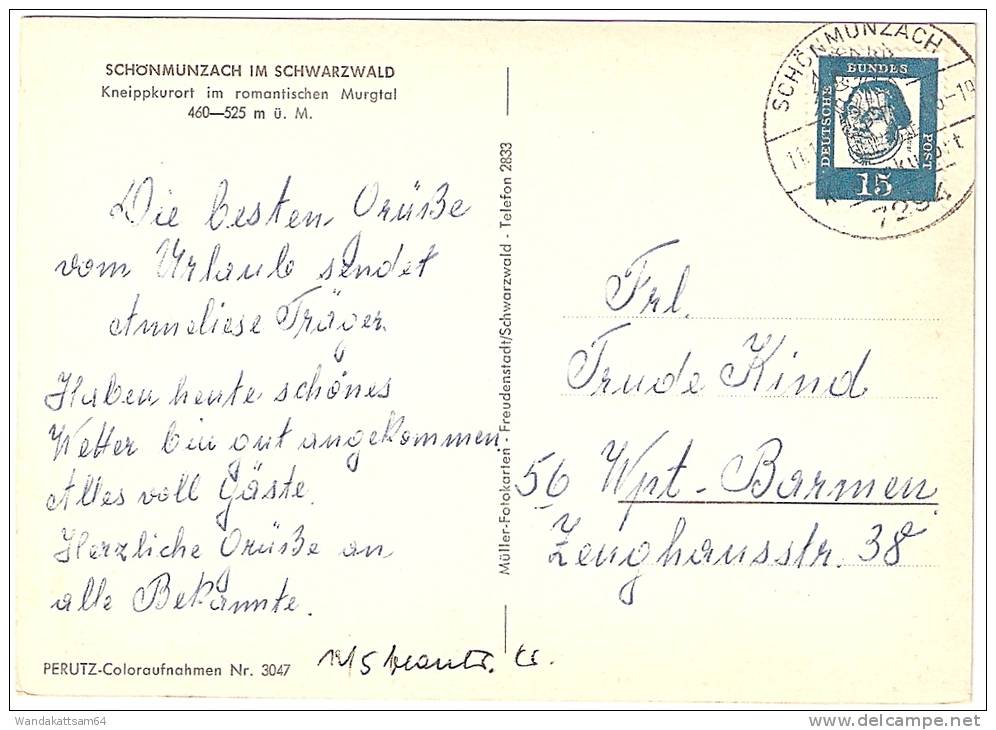 SCHÖNMÜNZACH IM SCHWARZWALD
Kneippkurort im romantischen Murgtal
460—525 m ü. M.
Die besten Grüße
vom Urlaub sendet
Anneliese Träger.
Haben heute schönes
Wetter bin gut angekommen.
Alles voll Gäste.
Herzliche Grüße an
alle Bekannte.
PERUTZ-Coloraufnahmen Nr. 3047
Müller-Fotokarten - Freudenstadt/Schwarzwald - Telefon 2833
SCHÖNMÜNZACH
7294
DEUTSCHE
BUNDES
POST
15
Frl.
Trude Kind
56 Wpt-Barmen
Zeughausstr. 38
Wandakattsam64
www.delcampe.net